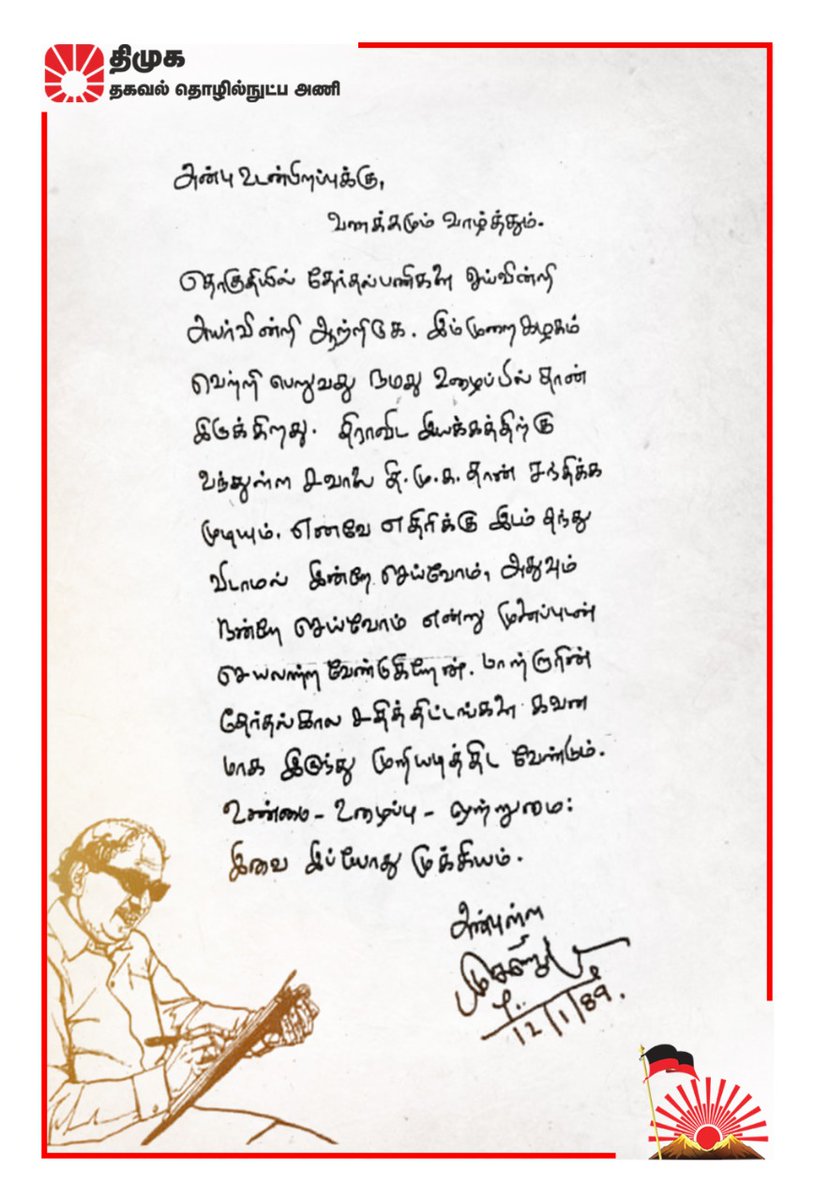 திமுக
தகவல் தொழில்நுட்ப அணி
அன்பு உடன்பிறப்புக்கு,
வணக்கமும் வாழ்த்தும்.
தொகுதியில் தேர்தல்பணிகளை ஓய்வின்றி
அயர்வின்றி ஆற்றிடுக. இம்முறை கழகம்
வெற்றி பெறுவது நமது உழைப்பில் தான்
இருக்கிறது. திராவிட இயக்கத்திற்கு
வந்துள்ள சவாலை தி.மு.க. தான் சந்திக்க
முடியும். எனவே எதிரிக்கு இடம் தந்து
விடாமல் இன்றே செய்வோம், அதுவும்
நன்றே செய்வோம் என்று முனைப்புடன்
செயலாற்ற வேண்டுகிறேன். மாற்றாரின்
தேர்தல்கால சதித்திட்டங்களை கவன
மாக இருந்து முறியடித்திட வேண்டும்.
உண்மை - உழைப்பு - ஒற்றுமை:
இவை இப்போது முக்கியம்.
அன்புள்ள
12/1/89.